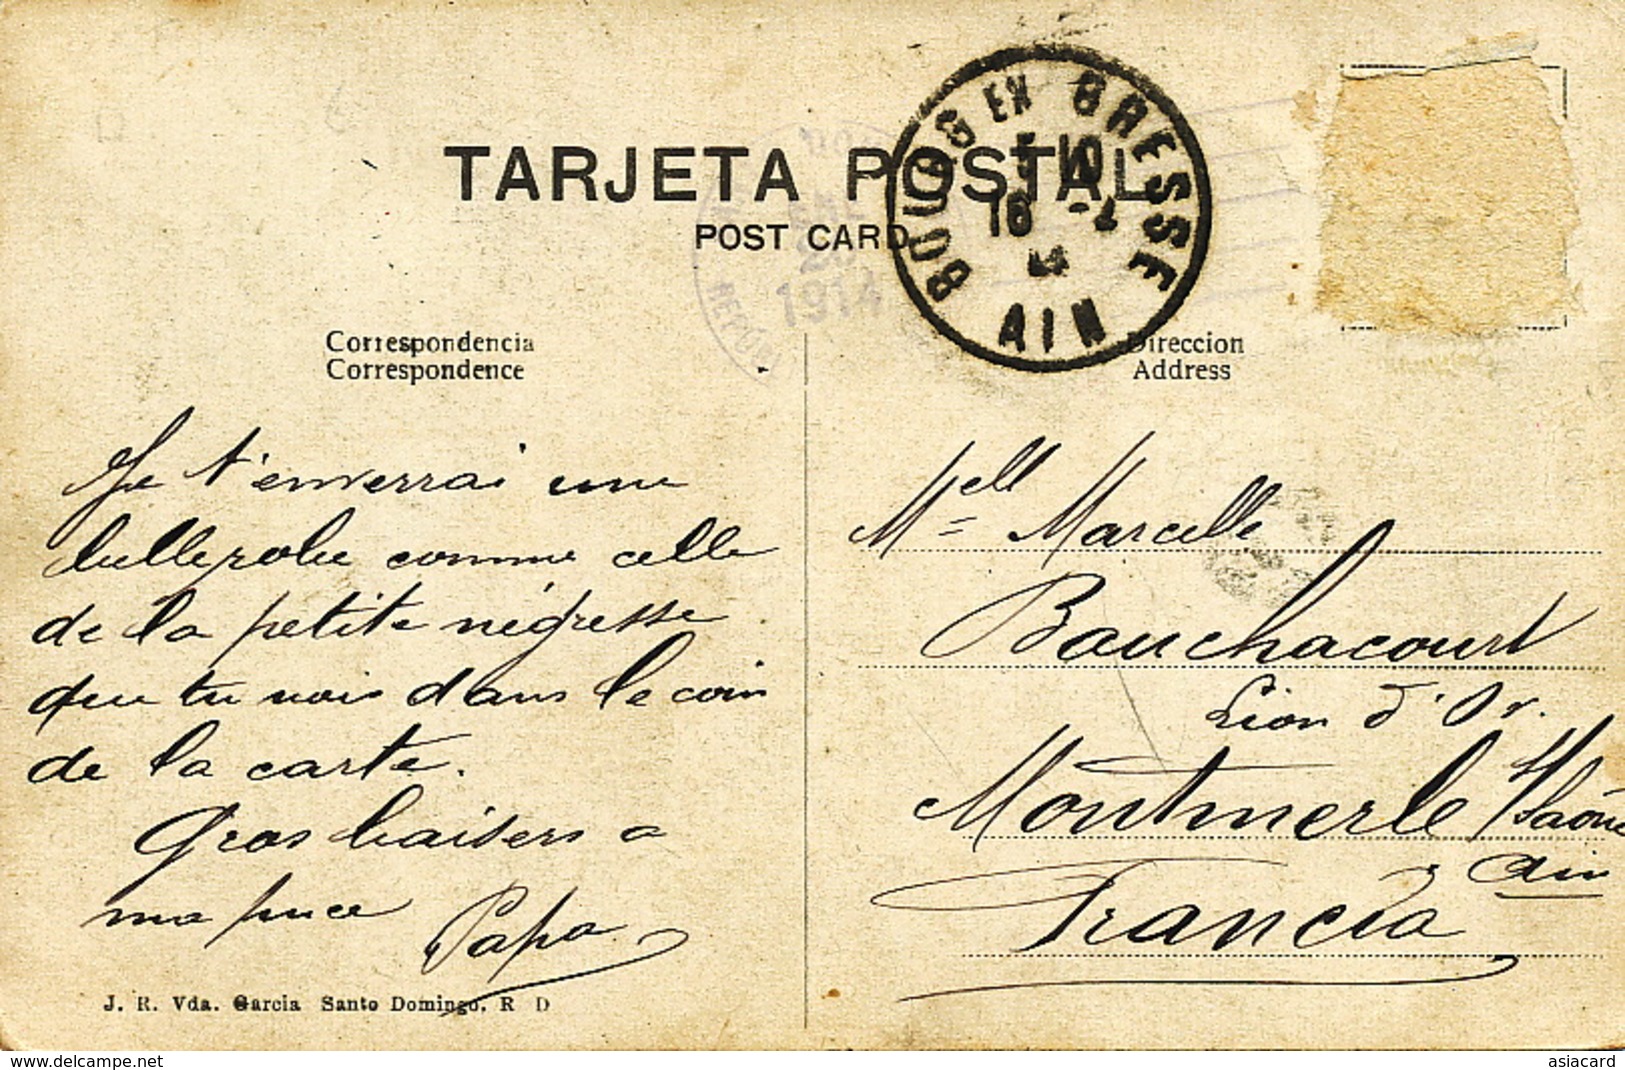 TARJETA POSTAL
POST CARD
BOURG EN BRESSE
16
AIN
1914
REPUB
Correspondencia
Correspondence
Direccion
Address
Je t'enverrai une
belle robe comme celle
de la petite négresse
que tu vois dans le coin
de la carte.
Gros baisers a
ma puce
Papa
Melle Marcelle
Bouchacourt
Lion d'Or.
Montmerle s/Saône
Ain
Francia
J. R. Vda. Garcia Santo Domingo. R D
delcampe.net
asiacard